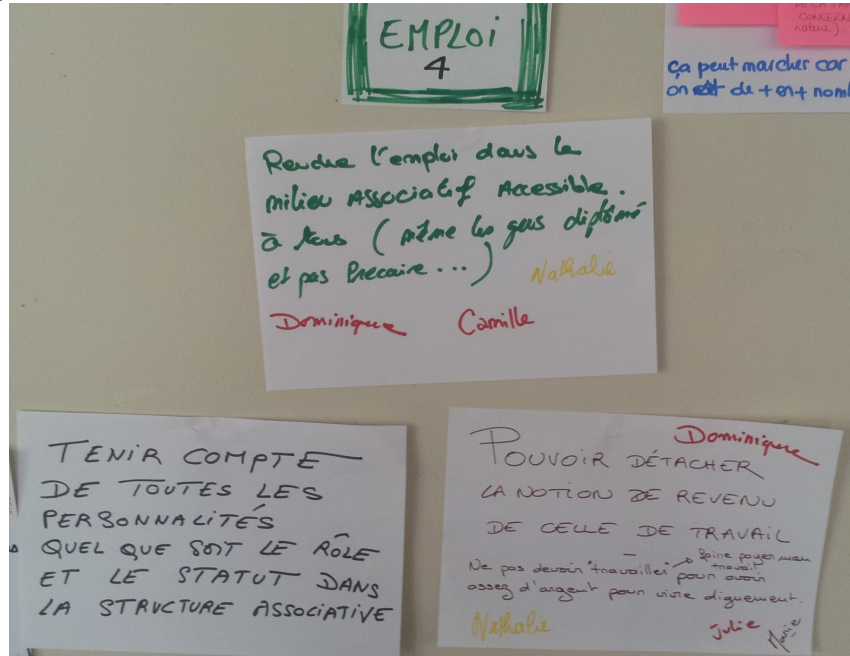 EMPLOI
4
DE LA PAR
CONCERN
nateur).
ça peut marcher car
on est de + en + nom
Rendre l'emploi dans le
milieu Associatif Accessible.
à tous (même les gens diplômé
et pas Precaire...)
Nathalie
Dominique Camille
TENIR COMPTE
DE TOUTES LES
PERSONNALITÉS
QUEL QUE SOIT LE RÔLE
ET LE STATUT DANS
LA STRUCTURE ASSOCIATIVE
Dominique
POUVOIR DÉTACHER
LA NOTION DE REVENU
DE CELLE DE TRAVAIL
faire payer mon
travail
Ne pas devoir "travailler" pour avoir
assez d'argent pour vivre dignement.
Nathalie Julie Marie